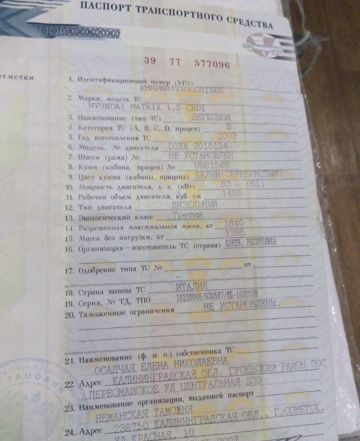 ПАСПОРТ ТРАНСПОРТНОГО СРЕДСТВА
39 ТТ 577096
отметки
1. Идентификационный номер (VIN)
2. Марка, модель ТС
HYUNDAI MATRIX 1.5 CRDI
3. Наименование (тип ТС) ЛЕГКОВОЙ
4. Категория ТС (A, B, C, D, прицеп) B
5. Год изготовления ТС 2003
6. Модель, № двигателя D3EA 2015154
7. Шасси (рама) № НЕ УСТАНОВЛЕН
8. Кузов (кабина, прицеп) № U081568
9. Цвет кузова (кабины, прицепа) БЕЛЫЙ (СЕРЕБРИСТЫЙ)
10. Мощность двигателя, л. с. (кВт) 83 - (61)
11. Рабочий объем двигателя, куб. см 1493
12. Тип двигателя ДИЗЕЛЬНЫЙ
13. Экологический класс Третий
14. Разрешенная максимальная масса, кг 1840
15. Масса без нагрузки, кг
16. Организация – изготовитель ТС (страна) КОРЕЯ, РЕСПУБЛИКА
17. Одобрение типа ТС № - от
18. Страна вывоза ТС ИТАЛИЯ
19. Серия, № ТД, ТПО
20. Таможенные ограничения НЕ УСТАНОВЛЕНЫ.
21. Наименование (ф. и. о.) собственника ТС
ОСАДЧАЯ ЕЛЕНА НИКОЛАЕВНА
22. Адрес КАЛИНИНГРАДСКАЯ ОБЛ., ГУСЕВСКИЙ РАЙОН ПОС
ПЕРВОМАЙСКОЕ УЛ ЦЕНТРАЛЬНАЯ
23. Наименование организации, выдавшей паспорт
НЕМАНСКАЯ ТАМОЖНЯ
24. Адрес 238750 КАЛИНИНГРАДСКАЯ ОБЛ., Г.СОВЕТСК,
УЛ КРАСНАЯ, 10